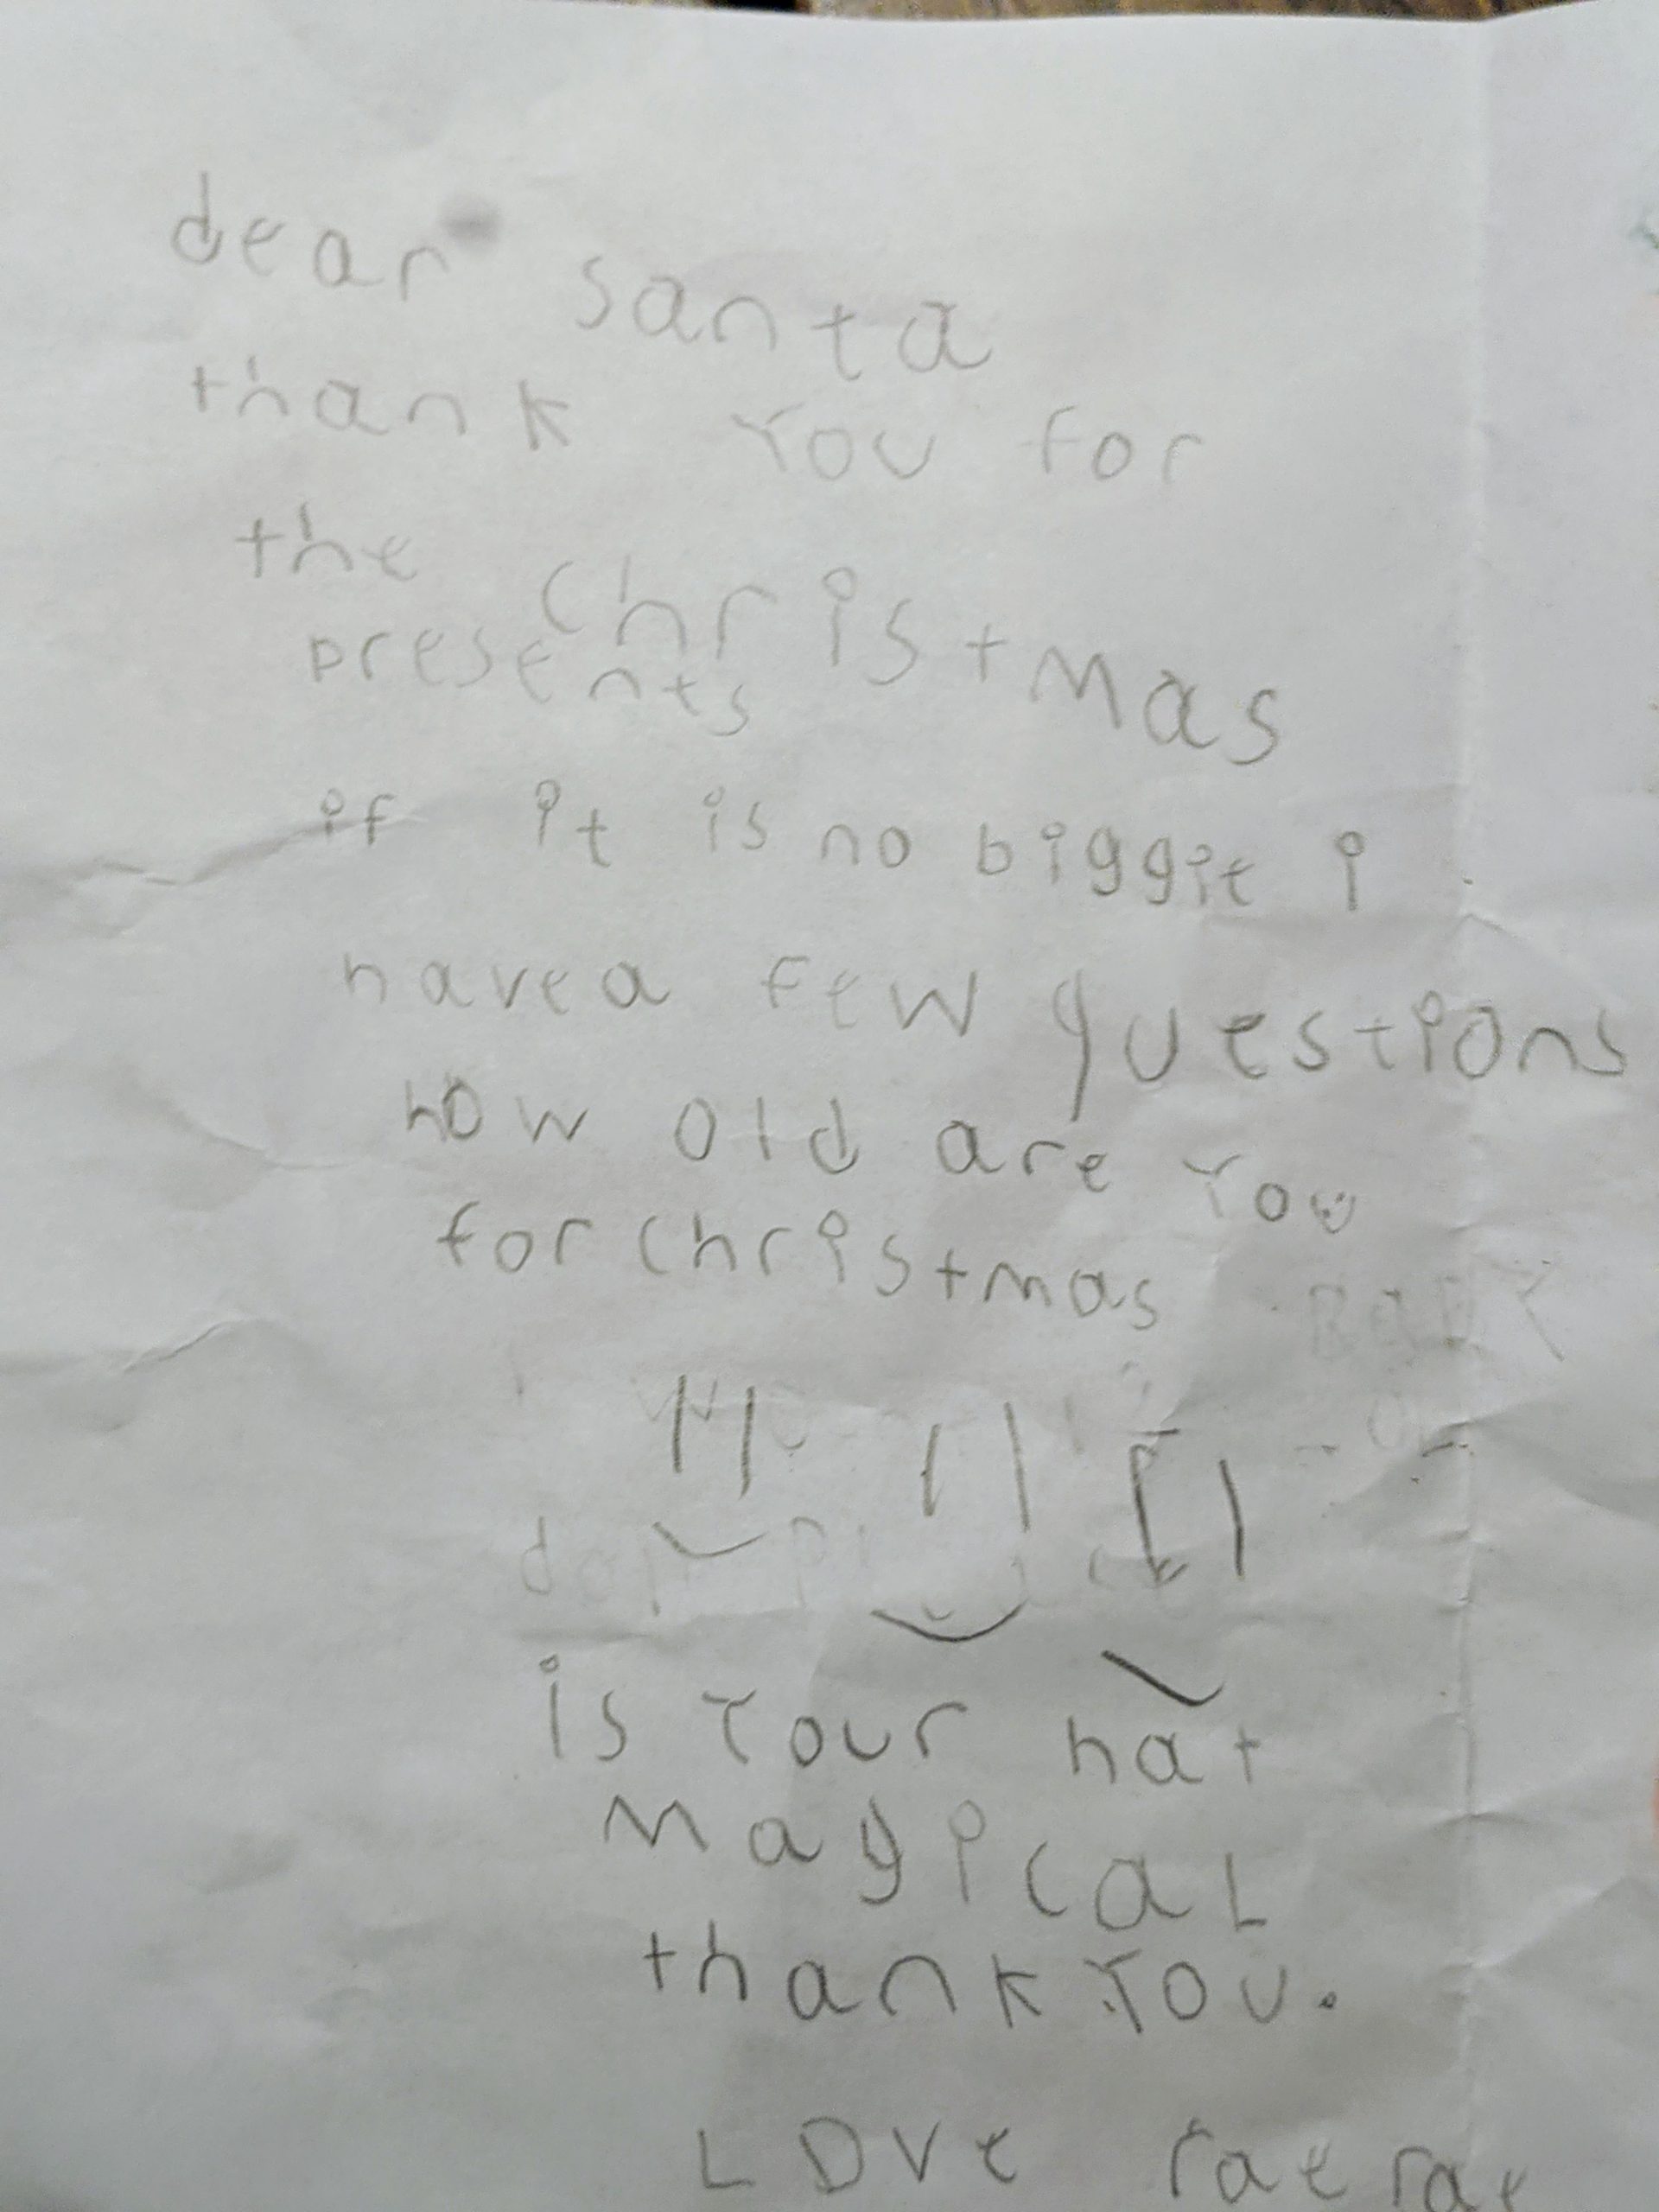 dear santa
thank You for
the Christmas
presents
if it is no biggie i
have a few questions
how old are You
for christmas
is Your hat
magicaL
thank You.
LOve raerae